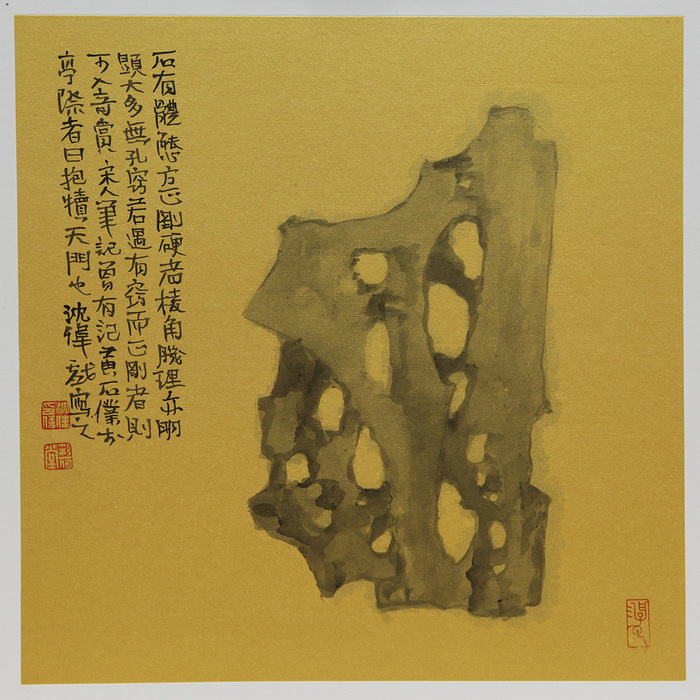 石有體態方正剛硬者棱角腠理亦明
顯大多無孔竅若遇有竅而正剛者則
可入音賞宋人筆記曾有記黃石僕
亭際者曰抱犢天門也沈偉戲寫之